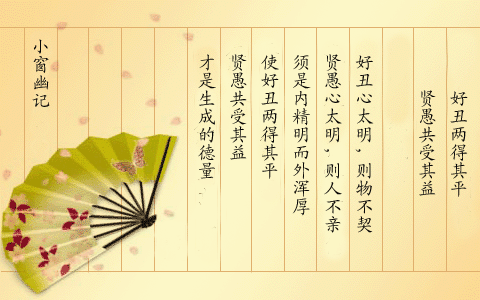 好丑两得其平
贤愚共受其益
好丑心太明,则物不契
贤愚心太明,则人不亲
须是内精明而外浑厚
使好丑两得其平
贤愚共受其益
才是生成的德量
小窗幽记